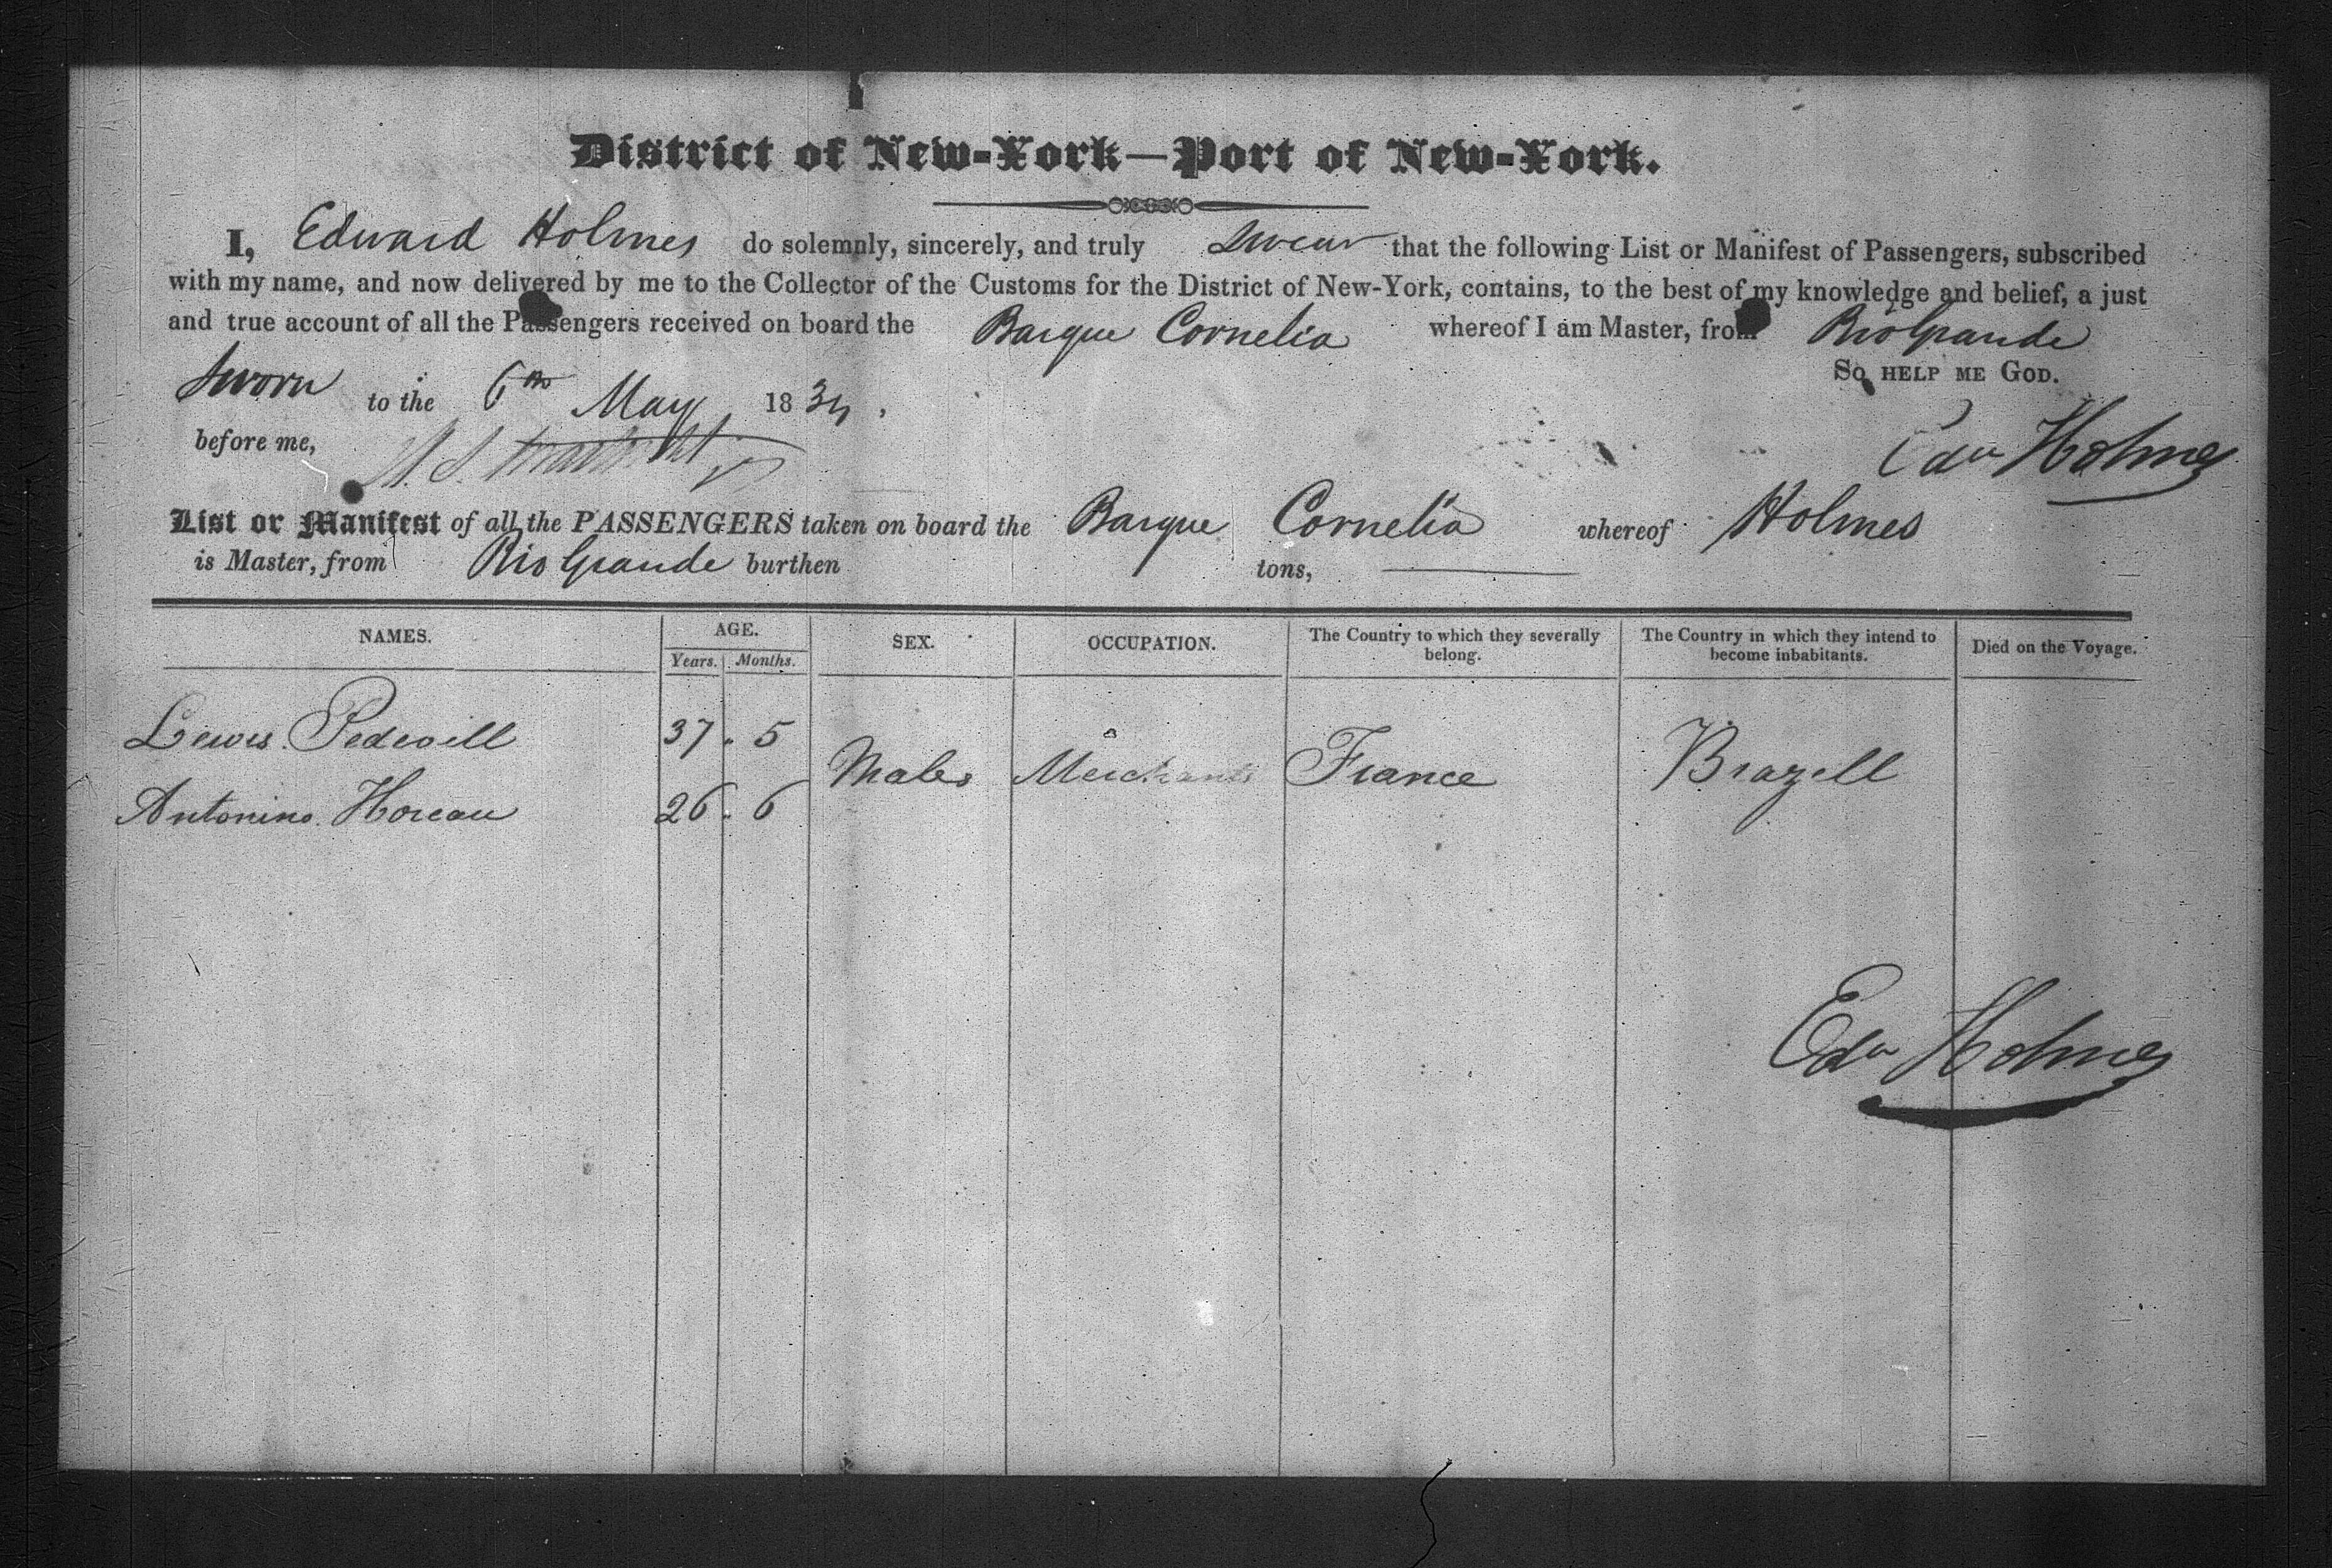 District of New-York—Port of New-York.
I, Edward Holmes do solemnly, sincerely, and truly swear that the following List or Manifest of Passengers, subscribed
with my name, and now delivered by me to the Collector of the Customs for the District of New-York, contains, to the best of my knowledge and belief, a just
and true account of all the Passengers received on board the Barque Cornelia whereof I am Master, from Rio Grande
So help me God.
Sworn to the 6th May 1834
before me,
Edw Holmes
List or Manifest of all the PASSENGERS taken on board the Barque Cornelia whereof Holmes
is Master, from Rio Grande burthen tons,
NAMES. AGE. SEX. OCCUPATION. The Country to which they severally belong. The Country in which they intend to become inhabitants. Died on the Voyage.
Years. Months.
Lewis Pedevill 37 5
Males Merchants France Brazell
Antonino Horeau 26 6
Edw Holmes